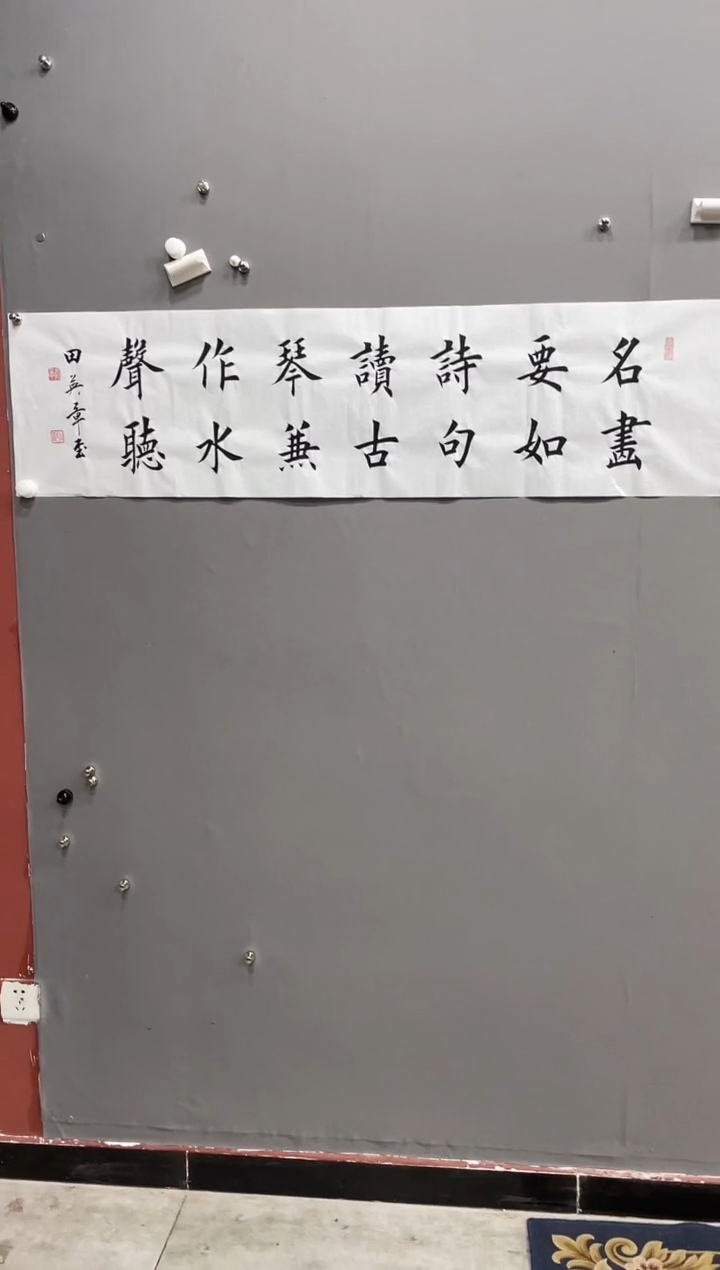 名畫
要如
詩句
讀古
琴兼
作水
聲聽
田英章書